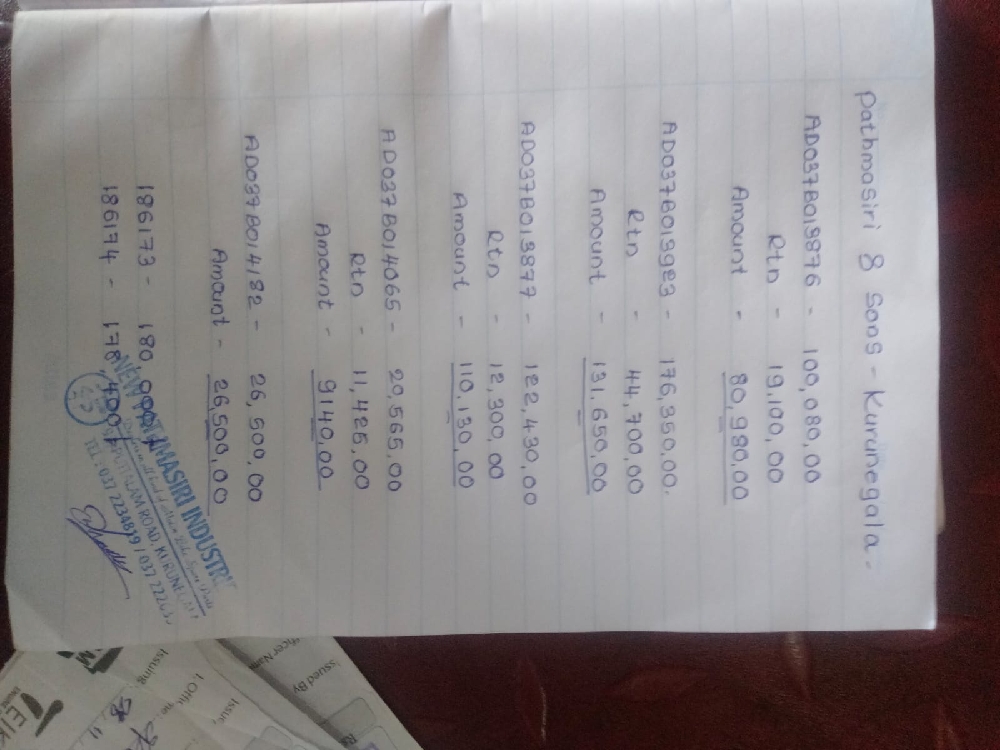 Pathmasiri & Sons - Kurunegala -
AD037B013876 - 100,080.00
Rtn - 19,100.00
Amount - 80,980.00
AD037B013983 - 176,350.00.
Rtn - 44,700.00
Amount - 131,650.00
AD037B013877 - 122,430.00
Rtn - 12,300.00
Amount - 110,130.00
AD037B014065 - 20,565.00
Rtn - 11,425.00
Amount - 9140.00
AD037B014182 - 26,500.00
Amount - 26,500.00
186173 - 180,000/
186174 - 178,400/
NEW PATHMASIRI INDUSTRI
PUTTALAM ROAD, KURUNEGALA
TEL: 037 2234819 / 037 222
Issued By
Officer Name
Issuing
Issue
TEIK